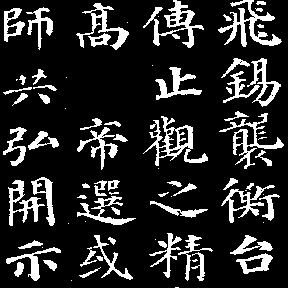 飛錫襲衡台
傳止觀之精
髙 帝選或
師共弘開示